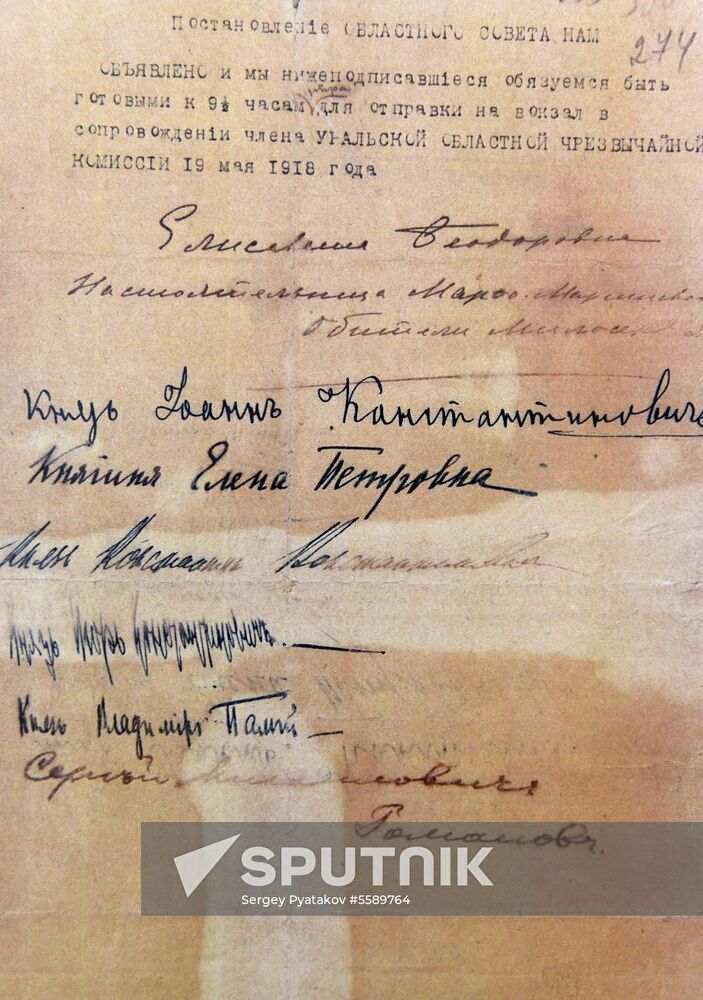 Постановленіе ОБЛАСТНОГО СОВЕТА НАМ
274
ОБЪЯВЛЕНО и мы нижеподписавшіеся обязуемся быть
утра
готовыми к 9½ часам для отправки на вокзал в
сопровожденіи члена УРАЛЬСКОЙ ОБЛАСТНОЙ ЧРЕЗВЫЧАЙНОЙ
КОМИССІИ 19 мая 1918 года
Елисавета Ѳеодоровна
Настоятельница Марфо-Маріинской
Обители Милосердія
Князь Іоаннъ Константиновичъ
Княгиня Елена Петровна
Князь Константинъ Константиновичъ
Князь Игорь Константиновичъ.
Князь Владиміръ Палѣй
Сергѣй Михаиловичъ
Романовъ.
SPUTNIK
Sergey Pyatakov #5589764